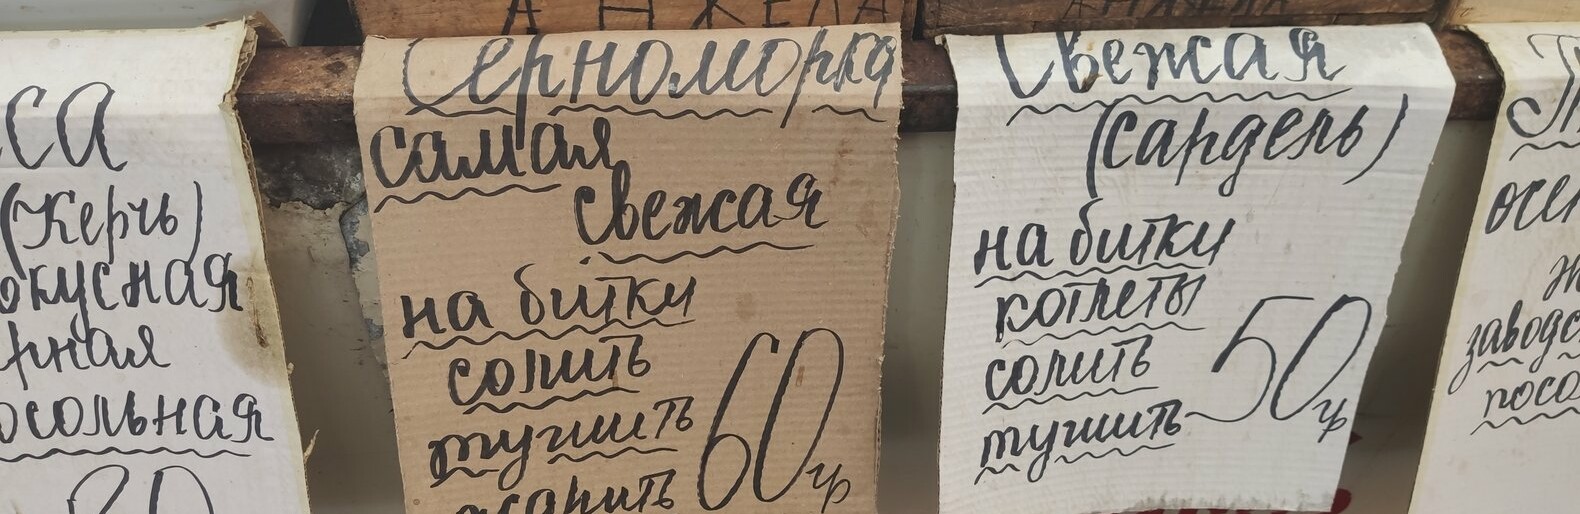 АНЖЕЛА
са
(Керчь)
окусная
рная
осольная
Черноморка
самая
свежая
на битки
солить
тушить
жарить
60 гр
Свежая
(сардель)
на битки
котлеты
солить
тушить
50 гр